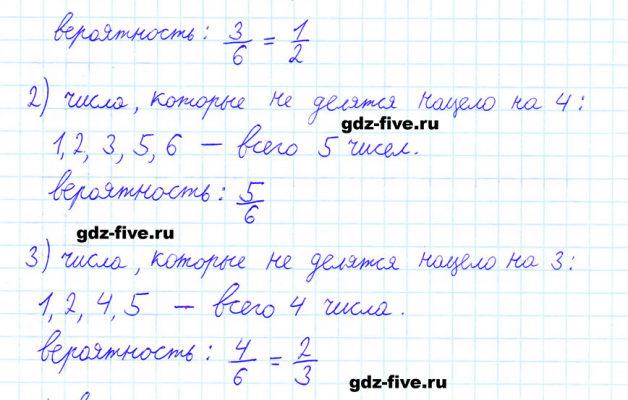 вероятность: 3/6 = 1/2
2) числа, которые не делятся нацело на 4:
gdz-five.ru
1, 2, 3, 5, 6 — всего 5 чисел.
вероятность: 5/6
gdz-five.ru
3) числа, которые не делятся нацело на 3:
1, 2, 4, 5 — всего 4 числа.
вероятность: 4/6 = 2/3
gdz-five.ru